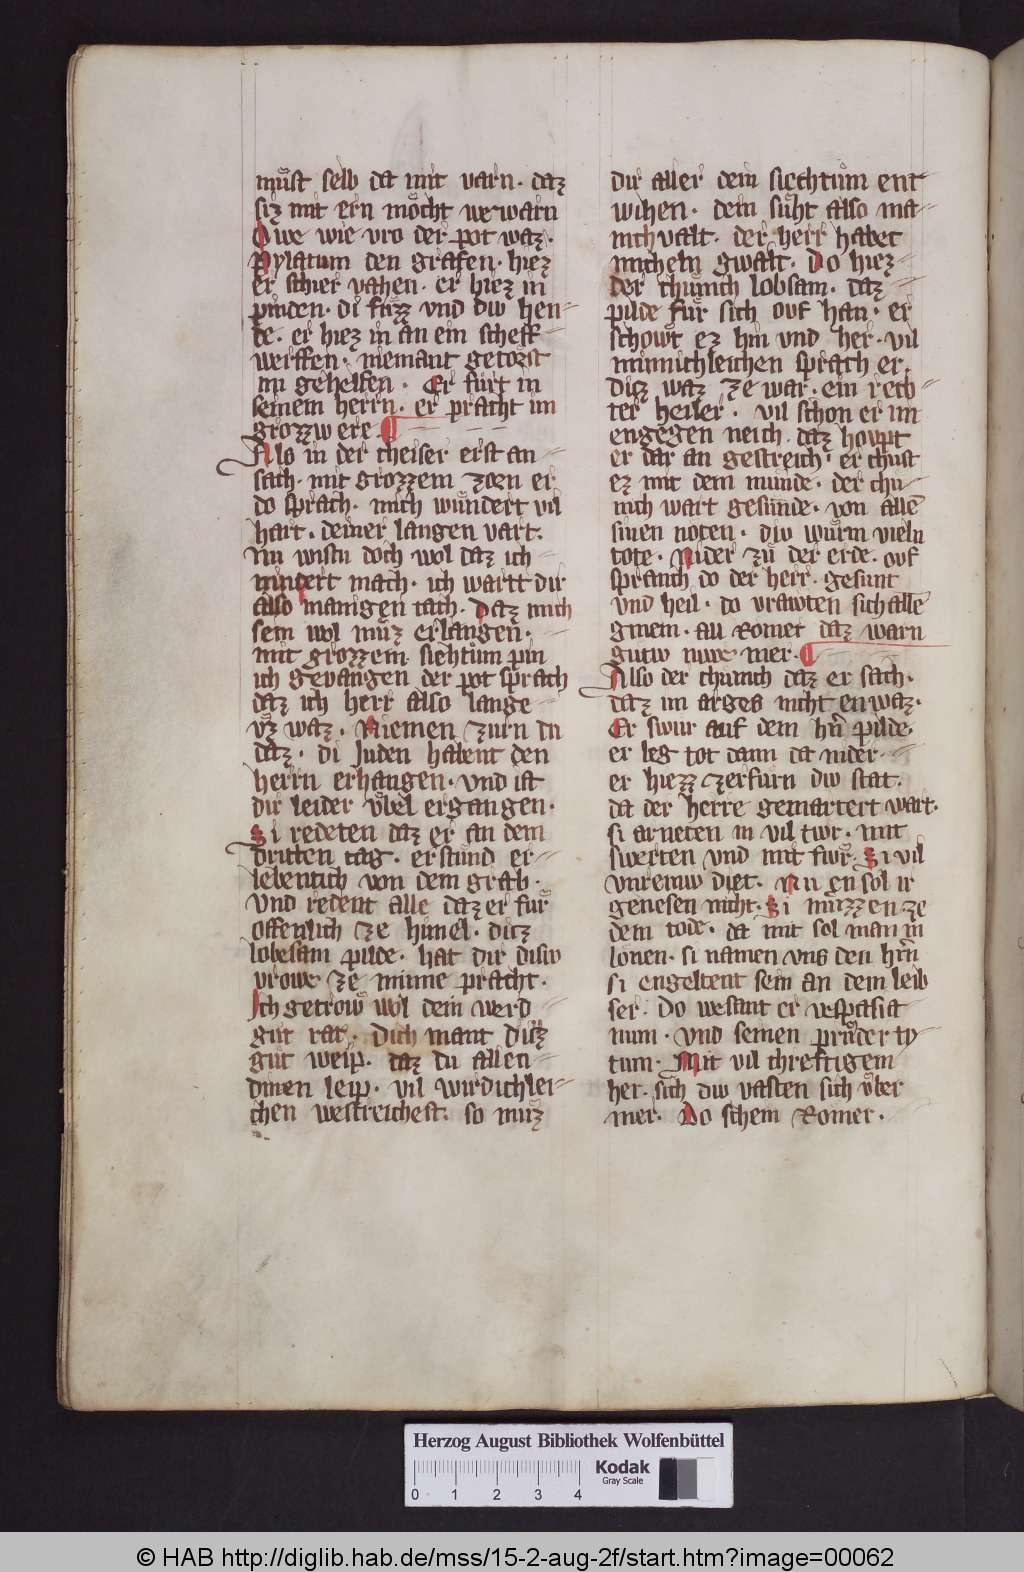 muͤst selb da mit varn · daz
siz mit ern moͤcht wewarn
Owe wie vro der pot waz ·
Pylatum den grafen · hiez
er schier vahen · er hiez in
pinden · di fuͤzz vnd div hen-
de · er hiez in an ein scheff
werffen · niemant getorst
im gehelfen · Er fuͤrt in
seinem herrn · er pracht im
grozzw ere ·
Als in der cheiser erst an
sach · mit grozzem zorn er
do sprach · mich wundert vil
hart · deiner langen vart ·
Nu wistu doch wol daz ich
nindert mach · ich wartt dir
also manigen tach · Daz mich
sein wol muͤz erlangen ·
mit grozzem siehtum pin
ich gevangen der pot sprach
daz ich herr also lange
vz waz · Niemen zurn du
daz · di Juden habent den
herrn erhangen · vnd ist
dir leider vbel ergangen ·
Si redeten daz er an dem
dritten tag · erstuͤnd er-
lebentich von dem grab ·
vnd redent alle daz er fuͤr
offenlich ze himel · ditz
lobesam pilde · hat dir disiv
vrowe ze minne pracht ·
Ich getrow wol dein werd
guͤt rat · Dich mant ditz
guͤt weip · daz du allen
dinen leip · vil wirdichlei-
chen westreichest · so muͤz
dir aller dein siechtuͤm ent
wihen · dein suͤht also ma-
nichvalt · der herr habet
micheln gwalt · Do hiez
der chuͤnich lobsam · daz
pilde fuͤr sich ovf han · er
schowt ez hin vnd her · vil
minnichleichen sprach er
ditz waz ze war · ein rech-
ter heiler · vil schon er im
engegen neich · daz houpt
er dar an gestreich · er chust
ez mit dem munde · der chu-
nich wart gesunde · von allē
sinen noten · div wuͤrm vieln
tote · Nider zu der erde · ovf
spranch do der herr · gesunt
vnd heil · do vrawten sich allē
gmein · all Romer daz warn
gutiv niwe mer ·
Also der chunich daz er sach ·
daz im arges niht enwaz ·
Er swur auf dem hr̄n pilde ·
er leg tot dann da nider ·
er hiezz zerfurn div stat ·
da der herre gemartert wart ·
si arneten in vil tiwr · mit
swerten vnd mit fiwr · Si vil
vnreiniw diet · Nu en sol ir
genesen nicht · Si muͤzzen ze
dem tode · da mit sol man in
lonen · si namen vns den hr̄n
si engeltent sein an dem leib
ser · Do wesant er vespasia
num · vnd seinen pruͤder ty-
tum · Mit vil chreftigem
her · sich div vasten sich vͤber
mer · Do schein Romer ·
Herzog August Bibliothek Wolfenbüttel
0 1 2 3 4
Kodak
Gray Scale
© HAB http://diglib.hab.de/mss/15-2-aug-2f/start.htm?image=00062